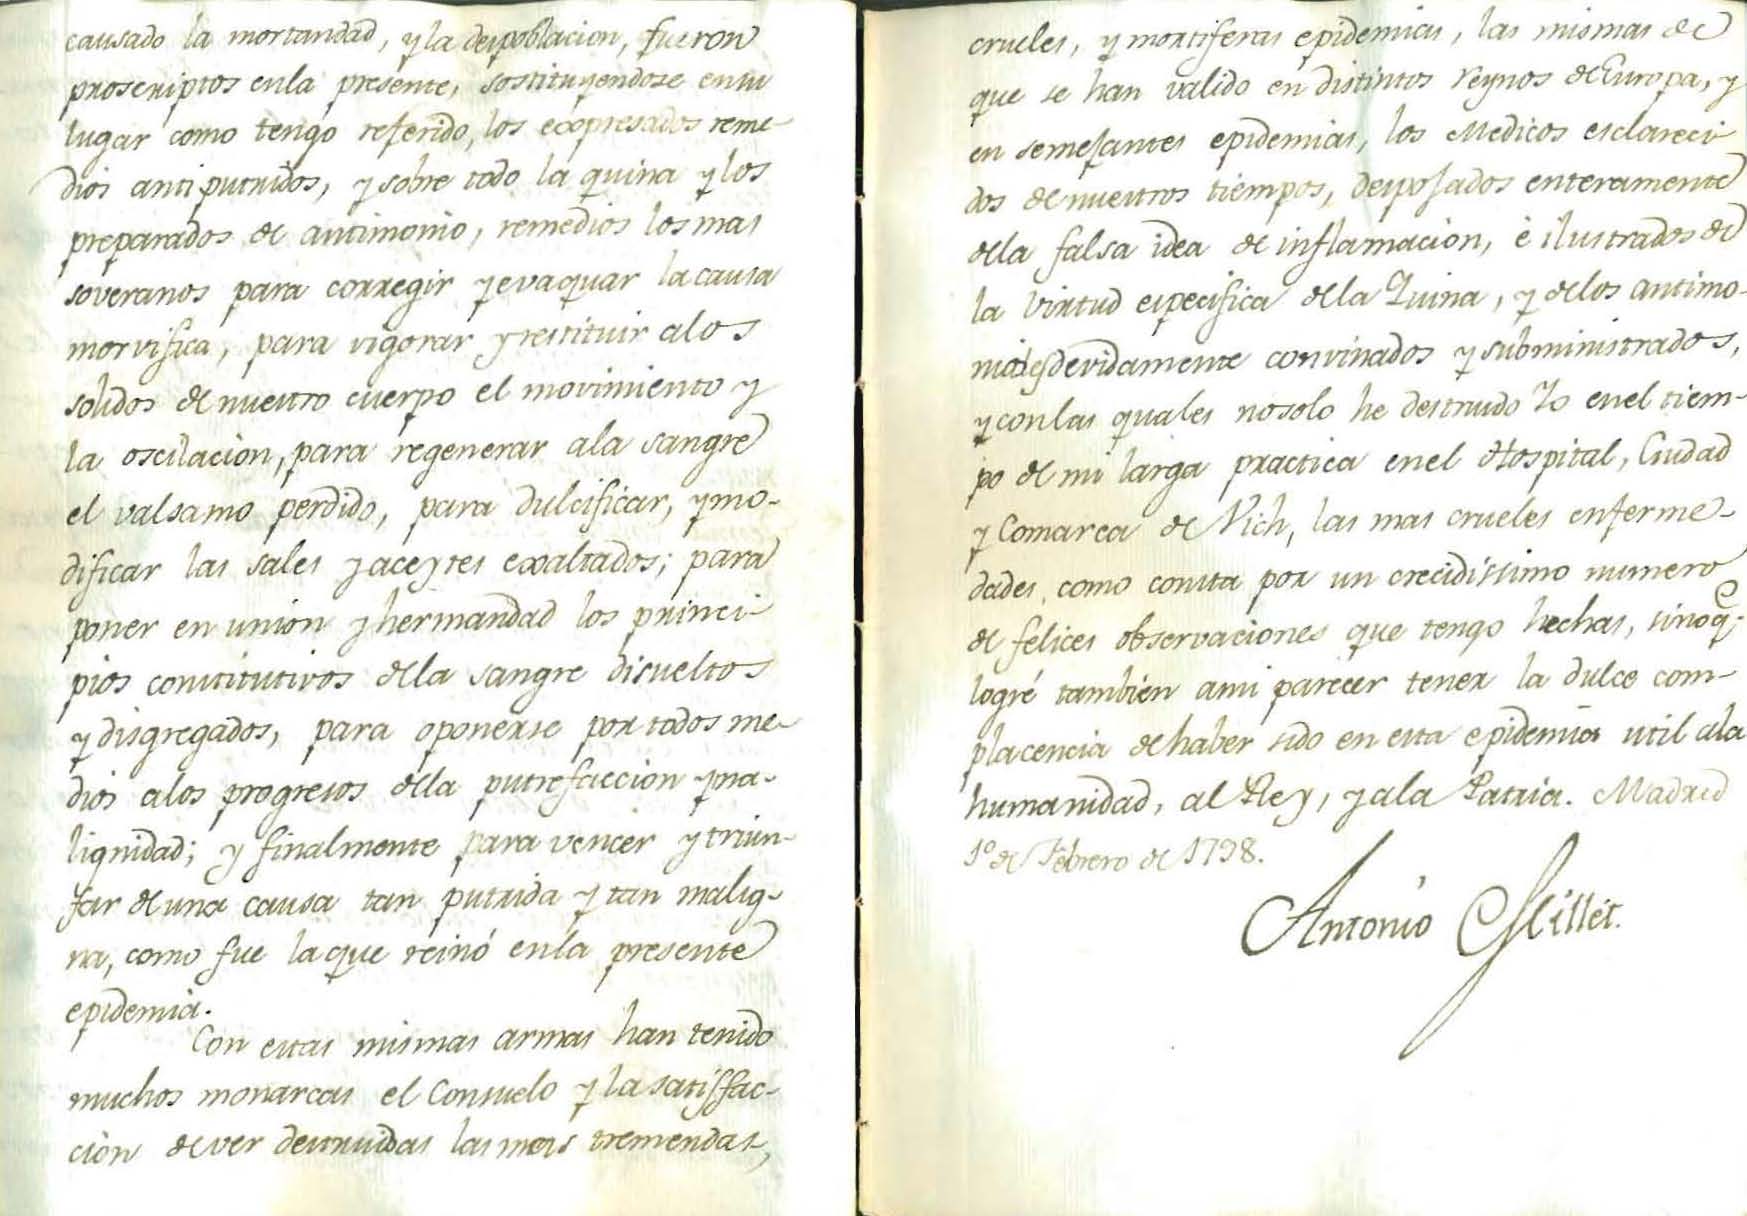 causado la mortandad, y la despoblacion, fueron
proscriptos enla presente, sostituyendose ensu
lugar como tengo referido, los expresados reme-
dios antiputridos, y sobre todo la quina y los
preparados de antimonio, remedios los mas
soveranos para corregir y evaquar la causa
morvifica, para vigorar y restituir alos
solidos de nuestro cuerpo el movimiento y
la oscilacion, para regenerar ala sangre
el valsamo perdido, para dulcificar, y mo-
dificar las sales y aceytes exaltados; para
poner en union y hermandad los princi-
pios constitutivos dela sangre disueltos
y disgregados, para oponerse por todos me-
dios alos progresos dela putrefaccion y ma-
lignidad; y finalmente para vencer y triun-
far de una causa tan putrida y tan malig-
na, como fue la que reinó enla presente
epidemia.
Con estas mismas armas han tenido
muchos monarcas el Consuelo y la satisfac-
cion de ver destruidas las mas tremendas,
crueles, y mortiferas epidemias, las mismas de
que se han valido en distintos Reynos de Europa, y
en semejantes epidemias, los Medicos esclareci-
dos de nuestros tiempos, despojados enteramente
dela falsa idea de inflamacion, è ilustrados de
la virtud especifica dela Quina, y delos antimo-
niales devidamente convinados y subministrados,
y con las quales no solo he destruido Yo enel tiem-
po de mi larga practica enel Hospital, Ciudad
y Comarca de Vich, las mas crueles enferme-
dades, como consta por un crecidissimo numero
de felices observaciones que tengo hechas, sinoq.e
logré tambien ami parecer tener la dulce com-
placencia de haber sido en esta epidemia util ala
humanidad, al Rey, y ala Patria. Madrid
1º de Febrero de 1798.
Antonio Millet.